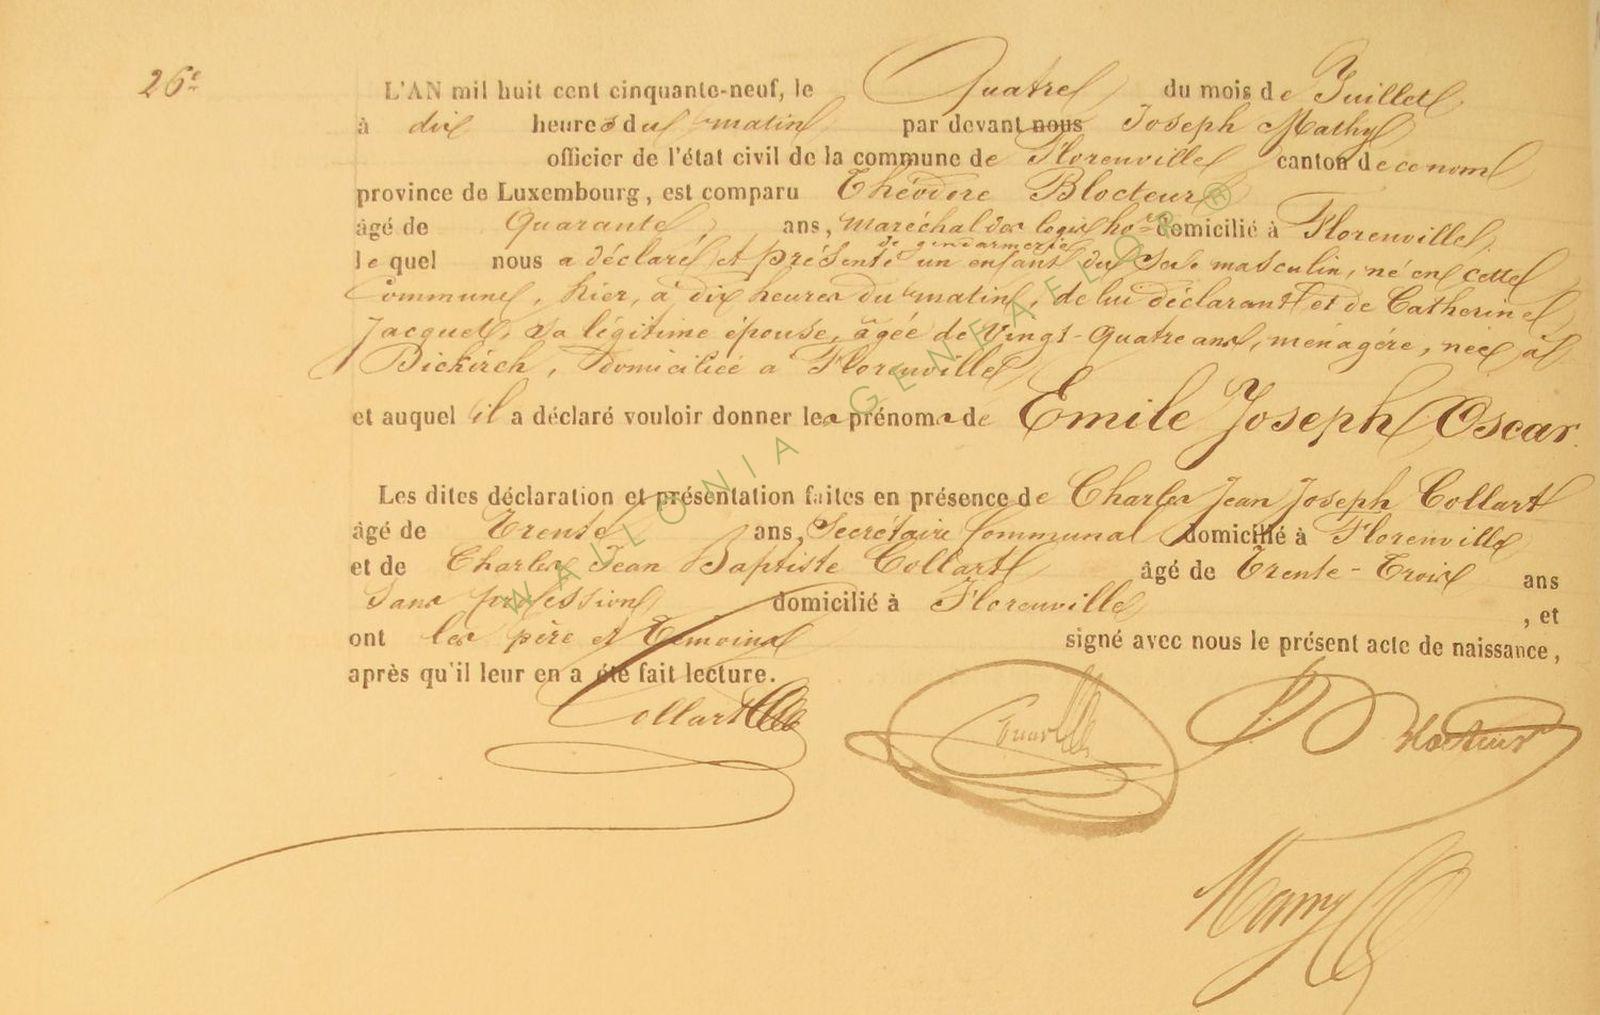 26e
L'AN mil huit cent cinquante-neuf, le Quatre du mois de Juillet
à dix heures du matin par devant nous Joseph Mathy
officier de l'état civil de la commune de Florenville canton de ce nom
province de Luxembourg, est comparu Théodore Blocteur
âgé de Quarante ans, maréchal des logis domicilié à Florenville,
de gendarmerie
lequel nous a déclaré et présenté un enfant du sexe masculin, né en cette
Commune, hier, à dix heures du matin, de lui déclarant et de Catherine
Jacquet, sa légitime épouse, âgée de Vingt-quatre ans, ménagère, née à
Bickirch, domiciliée à Florenville
et auquel il a déclaré vouloir donner les prénoms de Emile Joseph Oscar.
Les dites déclaration et présentation faites en présence de Charles Jean Joseph Collart
âgé de Trente ans, Secrétaire Communal domicilié à Florenville
et de Charles Jean Baptiste Collart âgé de Trente-Trois ans
Sans profession domicilié à Florenville , et
ont les père et Témoins signé avec nous le présent acte de naissance,
après qu'il leur en a été fait lecture.
Collart Blocteur
WALLONIA GENEAFLOR ®